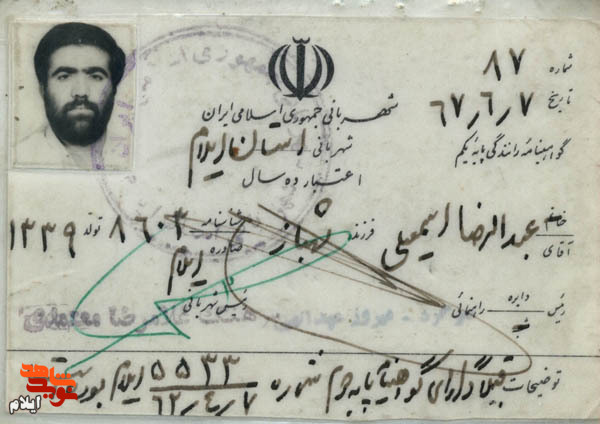 شماره ۸۷
تاریخ ۶۷٫۶٫۷
شهربانی جمهوری اسلامی ایران
گواهینامه رانندگی پایه یکم
شهربانی استان ایلام
اعتبار ده سال
خانم
آقای عبدالرضا اسمعیلی فرزند شهباز شناسنامه ۸۶۰۳ تولد ۱۳۳۹
صادره ایلام
رئیس دایره راهنمائی رئیس شهربانی
توضیحات قبلاً دارای گواهینامه پایه دوم شماره ۵۵۳۳ ایلام بوده است
۶۲٫۴٫۷
شاهد
نوید
ایلام